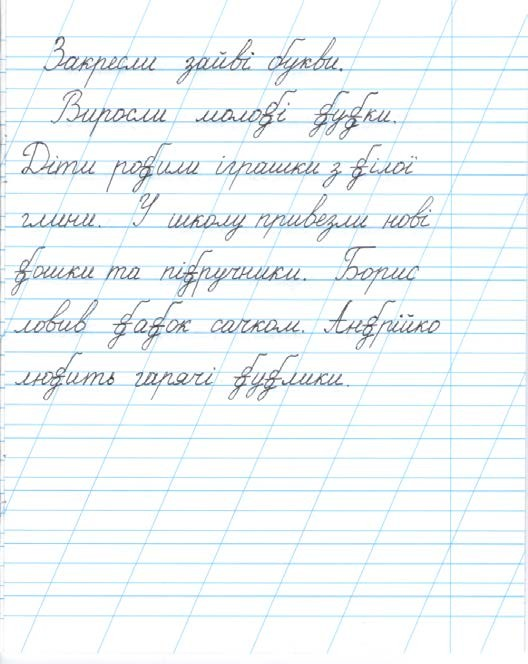 Закресли зайві букви.
Виросли молоді дубки.
Діти робили іграшки з білої
глини. У школу привезли нові
дошки та підручники. Борис
ловив бабок сачком. Андрійко
любить гарячі бублики.